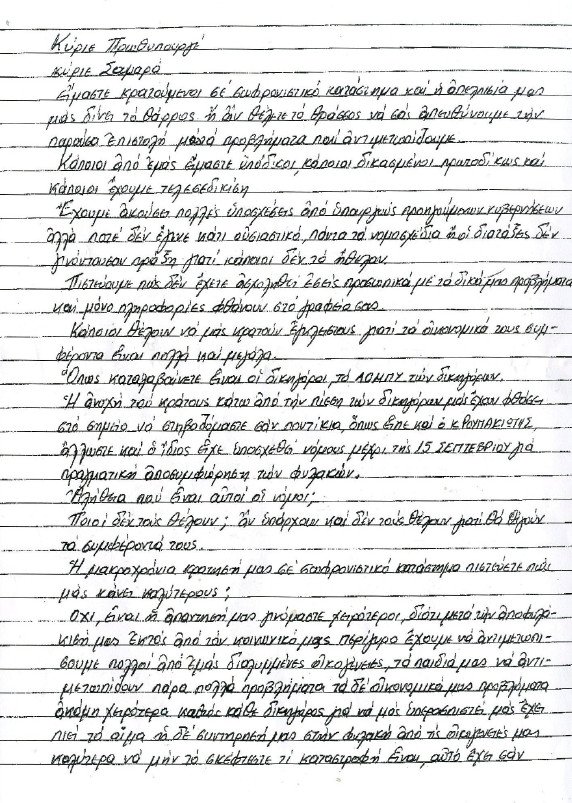 Κύριε Πρωθυπουργέ
κύριε Σαμαρά
Εἴμαστε κρατούμενοι σέ σωφρονιστικό κατάστημα καί ἡ ἀπελπισία μας
μᾶς δίνει τό θάρρος ἤ ἄν θέλετε τό θράσσος νά σᾶς ἀπευθύνουμε τήν
παρούσα ἐπιστολή μέ τά προβλήματα πού ἀντιμετωπίζουμε.
Κάποιοι ἀπό ἐμᾶς εἴμαστε ὑπόδικοι, κάποιοι δικασμένοι πρωτοδίκως καί
κάποιοι ἔχουμε τελεσεδικίση
Ἔχουμε ἀκούσει πολλές ὑποσχέσεις ἀπό ὑπουργούς προηγούμενων κυβερνήσεων
ἀλλά ποτέ δέν ἔγινε κάτι οὐσιαστικό, πάντα τά νομοσχέδια ἤ οἱ διατάξεις δέν
γινόντουσαν πράξη γιατί κάποιοι δέν τό ἤθελαν.
Πιστεύουμε πώς δέν ἔχετε ἀσχοληθεί ἐσεῖς προσωπικά μέ τά δικά μας προβλήματα
καί μόνο πληροφορίες φθάνουν στό γραφείο σας.
Κάποιοι θέλουν νά μᾶς κρατούν ἔγκλειστους γιατί τά οἰκονομικά τους συμ-
φέροντα εἶναι πολλά καί μεγάλα.
Ὅπως καταλαβαίνετε εἶναι οἱ δικηγόροι, τό ΛΟΜΠΥ τῶν δικηγόρων.
Ἡ ἀνοχή τοῦ κράτους κάτω ἀπό τήν πίεση τῶν δικηγόρων μᾶς ἔχουν φθάσει
στό σημείο νά στηβαζόμαστε σάν ποντίκια, ὅπως εἶπε καί ὁ κ ΡΟΥΠΑΚΙΩΤΗΣ,
ἄλλωστε καί ὁ ἴδιος εἶχε ὑποσχεθεί νόμους μέχρι τῆς 15 ΣΕΠΤΕΒΡΙΟΥ γιά
πραγματική ἀποσυμφώρηση τῶν φυλακῶν.
Ἀλήθεια πού εἶναι αὐτοί οἱ νόμοι;
Ποιοι δέν τούς θέλουν; ἄν ὑπάρχουν καί δέν τούς θέλουν γιατί θά θιγούν
τά συμφέροντά τους.
Ἡ μακροχρόνια κράτησή μας σέ σωφρονιστικό κατάστημα πιστεύετε πώς
μᾶς κάνει καλύτερους;
Οχι, εἶναι ἡ ἀπάντησή μας γινόμαστε χειρότεροι, διότι μετά τήν ἀποφυλά-
κισή μας ἐκτός ἀπό τόν κοινωνικό μας περίγυρο ἔχουμε νά ἀντιμετωπί-
σουμε πολλοί ἀπό ἐμᾶς διαλυμμένες οἰκογένειες, τά παιδιά μας νά ἀντι-
μετωπίζουν πάρα πολλά προβλήματα τά δέ οἰκονομικά μας προβλήματα
ἀκόμη χειρότερα καθώς κάθε δικηγόρος γιά νά μᾶς ὑπερασπιστεί μᾶς ἔχει
πιεί τό αἷμα ἡ δέ συντήρησή μας στήν φυλακή ἀπό τίς οἰκογένειές μας
καλύτερα νά μήν τό σκέφτεστε τί καταστροφή εἶναι, αὐτό ἔχει σάν